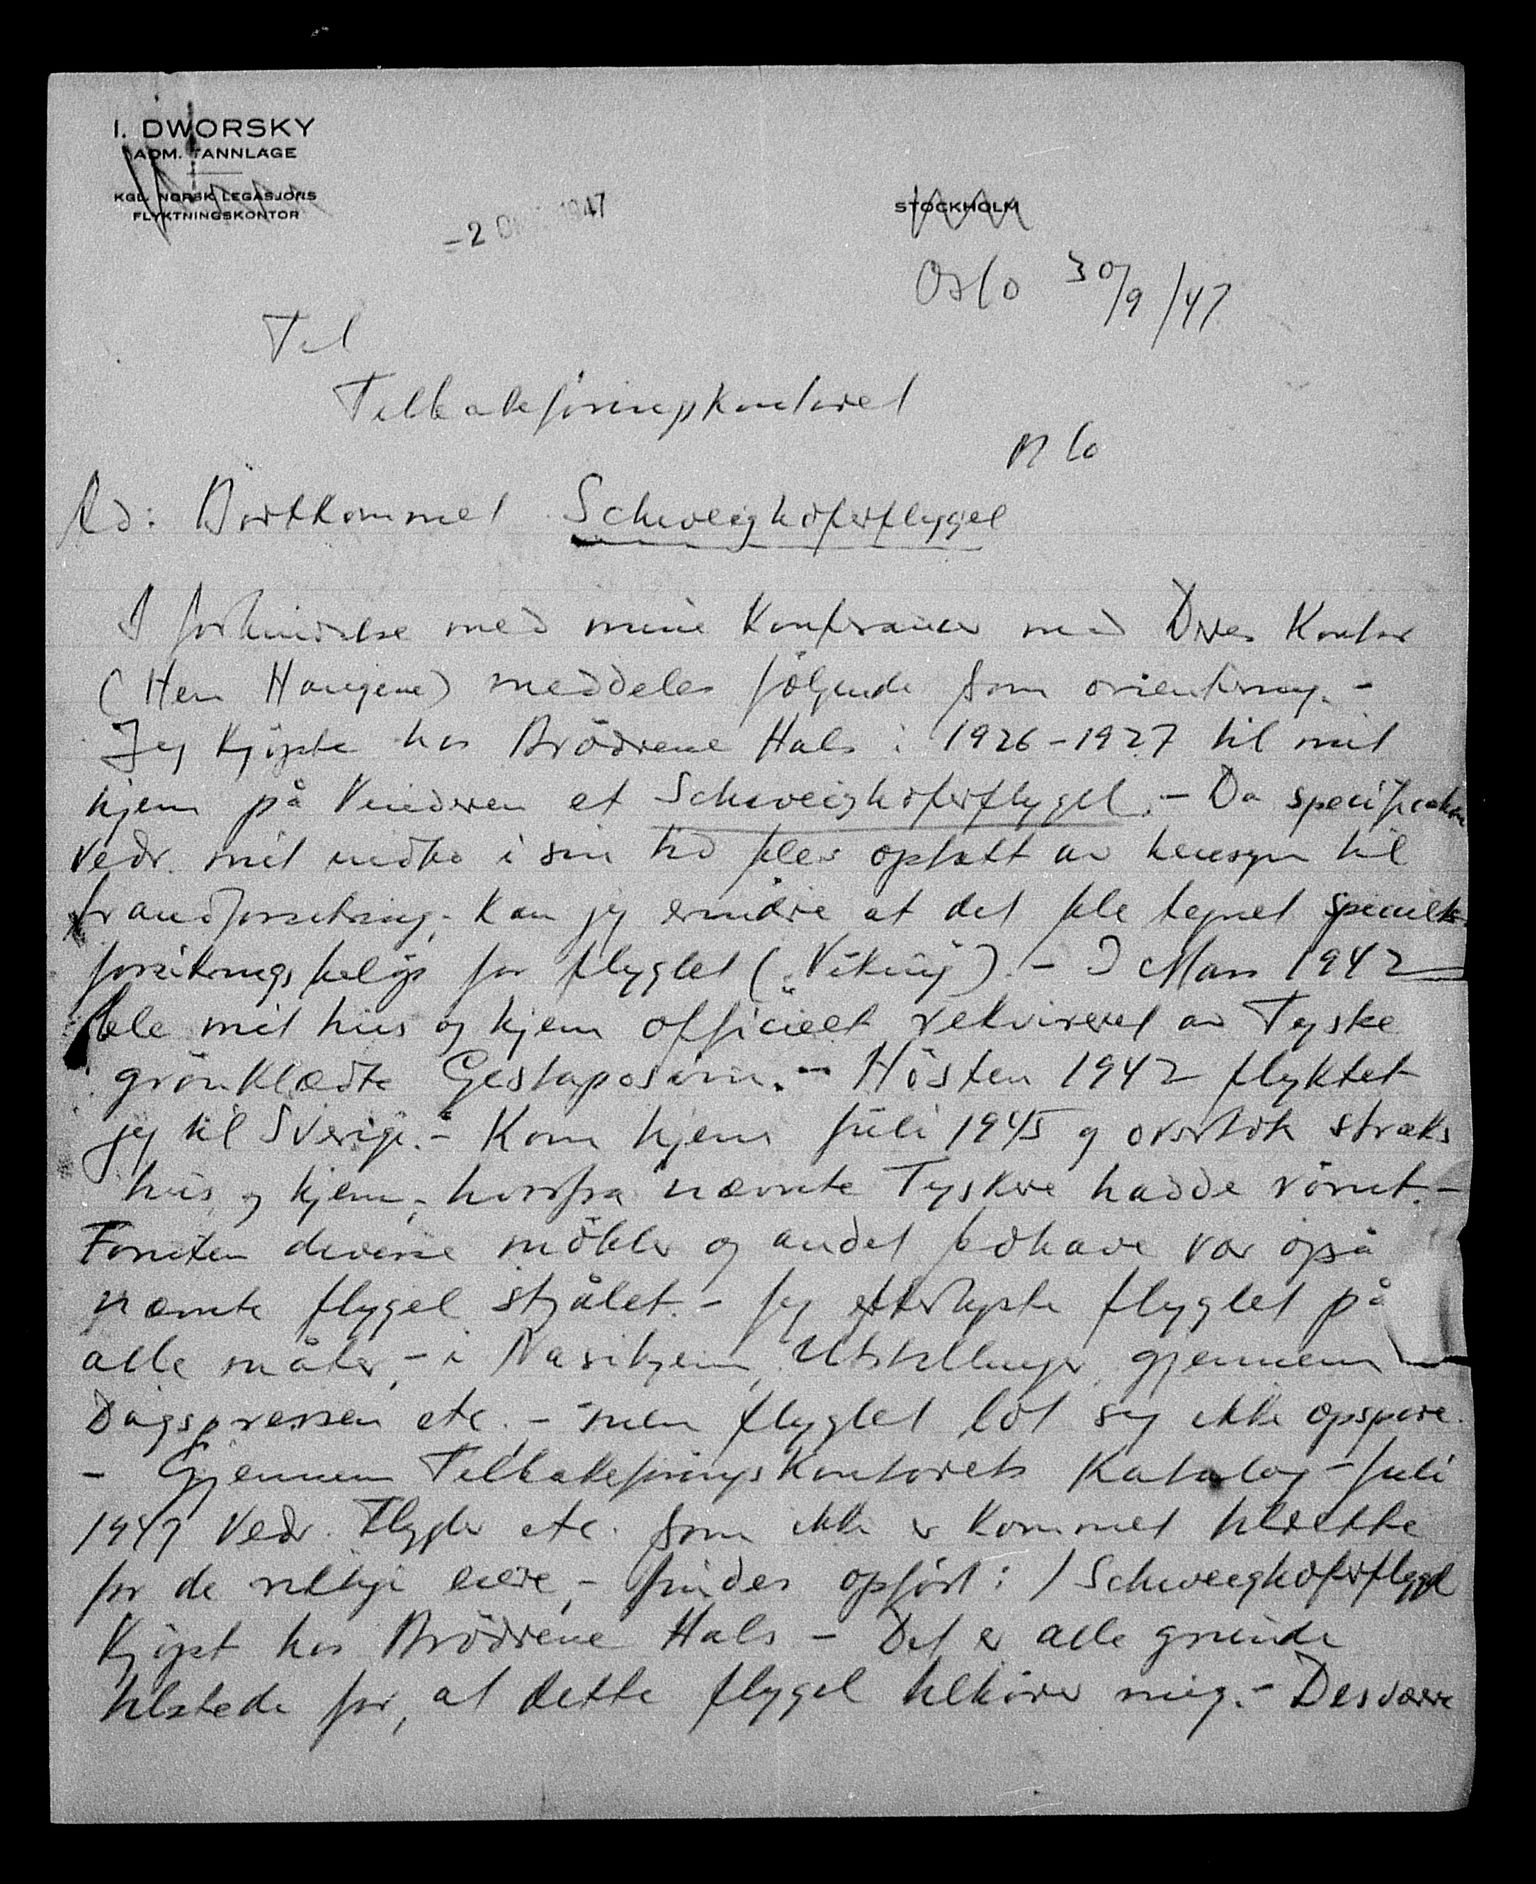 I. DWORSKY
ADM. TANNLÆGE
KGL. NORSK LEGASJONS
FLYKTNINGSKONTOR
-2 OKT. 1947
STOCKHOLM
Oslo 30/9/47
Til
Tilbakeføringskontoret
Ad: Bortkommet Schweighoferflygel
I forbindelse med mine Konferancer med Deres Kontor
(Herr Haugene) meddeles følgende som orientering. -
Jeg Kjøpte hos Brödrene Hals i 1926-1927 til mit
hjem på Vinderen et Schweighoferflygel. - Da specifikation
vedr. mit indbo i sin tid blev optatt av hensyn til
brandforsikring, kan jeg erindre at det ble tegnet specielt
forsikringsbeløp for flyglet („Viking"). - I Mars 1942
ble mit hus og hjem officielt rekvireret av Tyske
grönklædte Gestaposvin. - Hösten 1942 flyktet
jeg til Sverige. - Kom hjem Juli 1945 og overtok straks
hus og hjem, hvorfra nævnte Tyskere hadde römt. -
Foruten diverse möbler og andet indhave var også
nævnte flygel stjålet. - Jeg efterlyste flyglet på
alle måter, - i Nasihjem, Utstillinger, gjennem
Dagspressen etc. - men flyglet lot seg ikke opspore.
- Gjennem Tilbakeføringskontorets Katalog - Juli
1947 Vedr. Flygler etc. som ikke er kommet tilrette
for de rettige eiere, - findes opfört: 1 Schweighoferflygel
Kjøpt hos Brödrene Hals - Det er alle grunde
tilstede for, at dette flygel tilhører mig. - Desværre